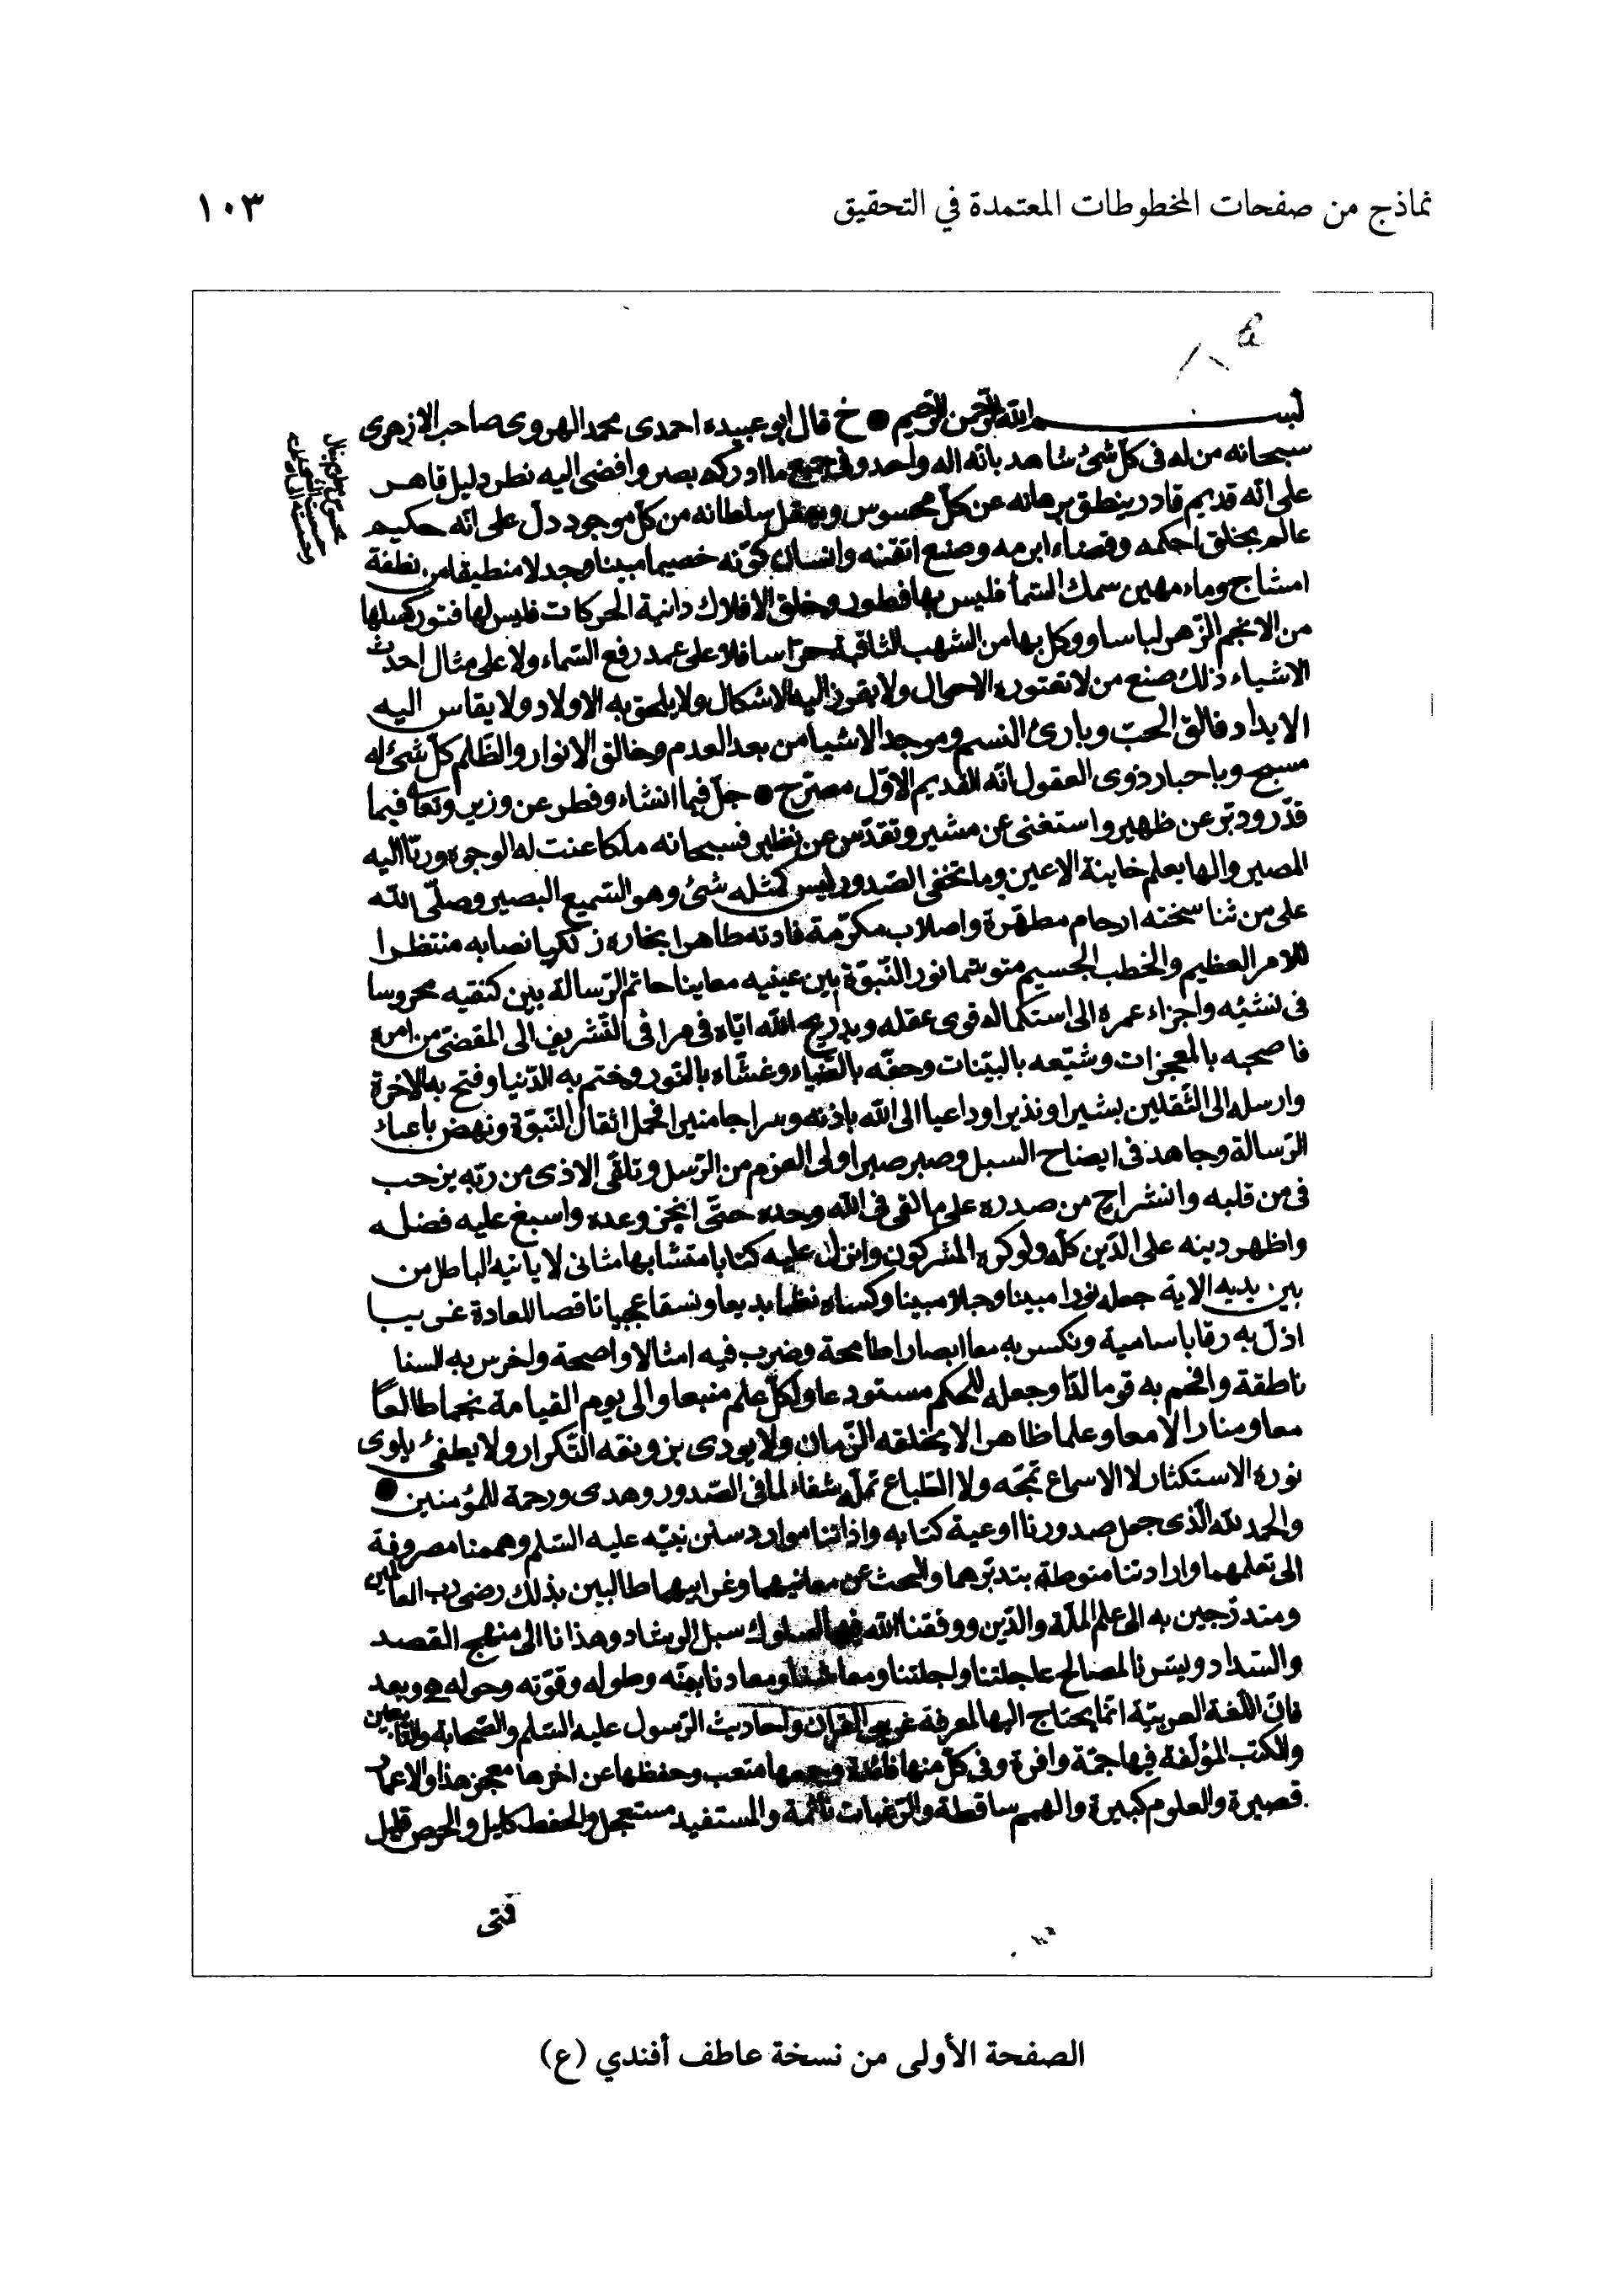 نماذج من صفحات المخطوطات المعتمدة في التحقيق
١٠٣
بسم الله الرحمن الرحيم خ قال ابو عبيده احمدى محمد الهروى صاحب الازهرى
سبحانه من له فى كلّ شئ شاهد بانه اله واحد وفى جميع ما ادركه بصر وافضى اليه نظر دليل قاهر
على انّه قديم قادر ينطق برهانه عن كلّ محسوس سلطانه من كلّ موجود دلّ على انّه حكيم
عالم بخلق احكمه وقضاء ابرمه وصنع اتقنه وانسان كوّنه خصيما مبينا وجدلا منطيقا من نطفة
امشاج وماء مهين سمك السّمأ فليس بها فطور وخلق الافلاك دانية الحركات فليس لها فتور
من الانجم الزّهر لباسا ووكل بها من الشهب الثاقبة حرّاسا فلا على عمد رفع السّماء ولا على مثال احدث
الاشياء ذلك صنع من لا تعتوره الاحوال ولا اليه الاشكال ولا يلحق به الاولاد ولا يقاس اليه
الانداد فالق الحبّ وبارئ النسم وموجد الاشيأ من بعد العدم وخالق الانوار والظّلم كلّ شئ له
مسبح وباخبار ذوى العقول انّه القديم الاوّل مصرّح جلّ فيما انشاء وفطر عن وزير وتعا فيما
قدّر ودبّر عن ظهير واستغنى عن مشير وتقدّس عن نظير فسبحانه ملكا عنت له الوجوه وربّا اليه
المصير والها يعلم خاينة الاعين وما تخفى الصّدور ليس كمثله شئ وهو السّميع البصير وصلّى الله
على من ارحام مطهّرة واصلاب مكرّمة فادته طاهرا منتظرا
للامر العظيم والخطب الجسيم متوسّما نور النّبوّة بين عينيه معاينا خاتم الرّسالة بين كتفيه محروسا
فى نشئه واجزاء عمره الى استكماله قوى عقله الله ايّاه فى التّشريف الى المقضىّ من امره
فاصحبه بالمعجزات وشيّعه بالبيّنات وحفّه بالضّياء وغشّاه بالنّور وختم به الدّنيا وفتح به الاخرة
وارسله الى الثّقلين بشيرا ونذيرا وداعيا الى الله باذنه وسراجا منيرا فحمل اثقال النّبوّة ونهض باعباء
الرّسالة وجاهد فى ايضاح السبل وصبر صبر اولى العزم من الرّسل وتلقّى الاذى من ربّه برحب
فى من قلبه وانشراح من صدره على ما لقى فى الله وحده حتّى انجز وعده واسبغ عليه فضله
واظهر دينه على الدّين كلّه ولو كره المشركون وانزل عليه كتابا متشابها مثانى لا يأتيه الباطل من
بين يديه الاية جعله نورا مبينا وحبلا مبينا وكساه نظما بديعا ونسقا عجيبا ناقصا للعادة غريبا
اذلّ به رقابا سامية ونكس به معا ابصارا طامحة وضرب فيه امثالا واضحة واخرس به السنا
ناطقة وافحم به قوما لدّا وجعله للحكم مستودعا ولكلّ علم منبعا والى يوم القيامة نجما طالعًا
معا ومنارا لامعا وعلما ظاهرا لا يخلقه الزّمان ولا التّكرار ولا يطفئ
نوره الاستكثار لا الاسماع تمجّه ولا الطّباع تملّه شفاء لما فى الصّدور وهدى ورحمة للمؤمنين
والحمد لله الّذى جعل صدورنا اوعية كتابه واذاننا موارد سنن نبيّه عليه السّلم وهممنا مصروفة
الى تعلمهما وارادتنا منوطة بتدبّرهما والبحث عن معانيهما وغرايبهما طالبين بذلك رضى ربّ العالمين
ومتدرّجين به الى علم الملّة والدّين ووفقنا الله فيها لسلوك سبل الرشاد وهدانا الى منهج القصد
والسّداد ويسّرنا لمصالح عاجلتنا واجلتنا ومعاشنا ومعادنا بمنّه وطوله وقوّته وحوله وبعد
فانّ اللّغة العربيّة انّما يحتاج اليها لمعرفة غريبى القران واحاديث الرّسول عليه السّلم والصّحابة والتابعين
والكتب المؤلّفة فيها جمّة وافرة وفى كلّ منها فائدة وجمعها متعب وحفظها عن اخرها معجز هذا والاعمار
قصيرة والعلوم كبيرة والهمم ساقطة والرّغبات نائمة والمستفيد مستعجل والحفظ كليل والحرص قليل
فتى
الصفحة الأولى من نسخة عاطف أفندي (ع)